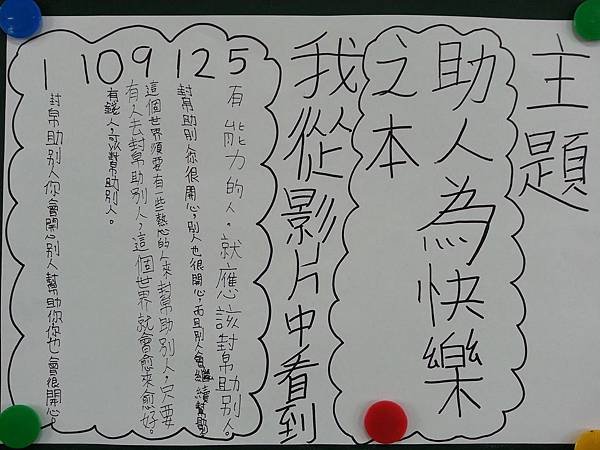 主題
助人為快樂
之本
我從影片中看到
5 有能力的人。就應該幫助別人。
12 幫助別人你很開心,別人也很開心,而且別人會繼續幫助。
9 這個世界須要有些熱心的人來幫助別人,只要
有人去幫助別人,這個世界就會愈來愈好。
10 有錢人,可以幫助別人。
1 幫助別人你會開心別人幫助你你也會很開心。